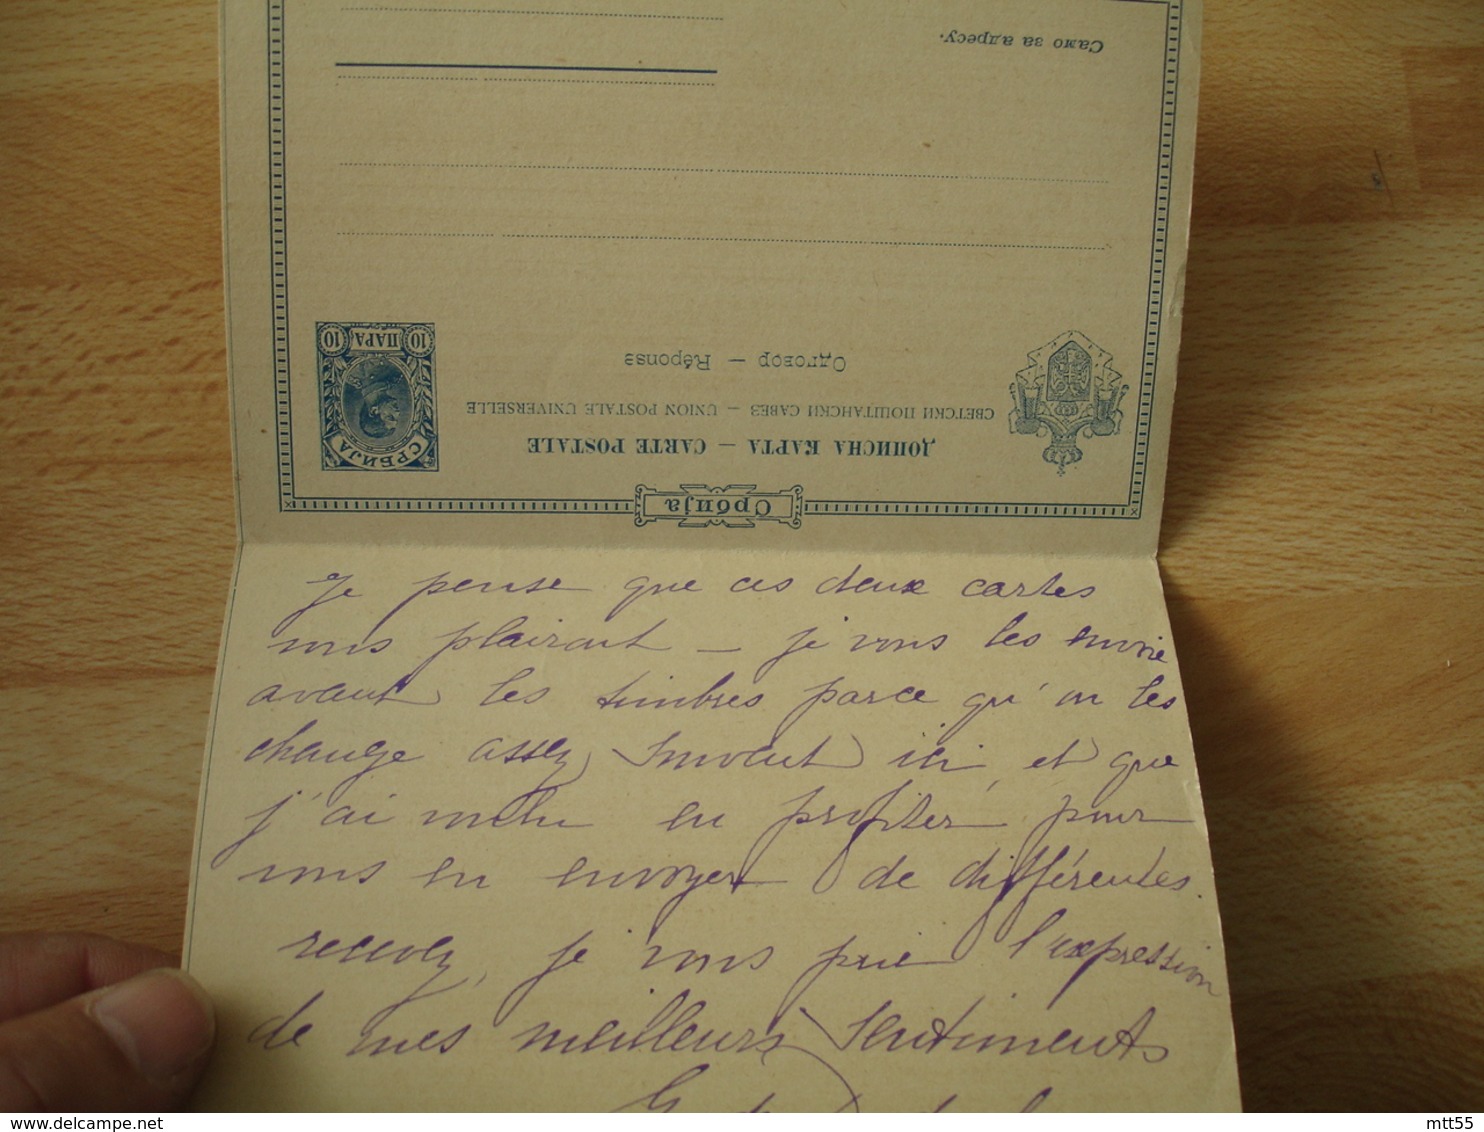 Само за адресу.
10 ПАРА 10
СРБИЈА
Одговор — Réponse
СВЕТСКИ ПОШТАНСКИ САВЕЗ — UNION POSTALE UNIVERSELLE
ДОПИСНА КАРТА — CARTE POSTALE
Србија
Je pense que ces deux cartes
vous plairont — je vous les envoie
avant les timbres parce qu'on les
change assez souvent ici, et que
j'ai voulu en profiter pour
vous en envoyer de différentes.
recevez, je vous prie l'expression
de mes meilleurs sentiments
delcampe.net
mtt55